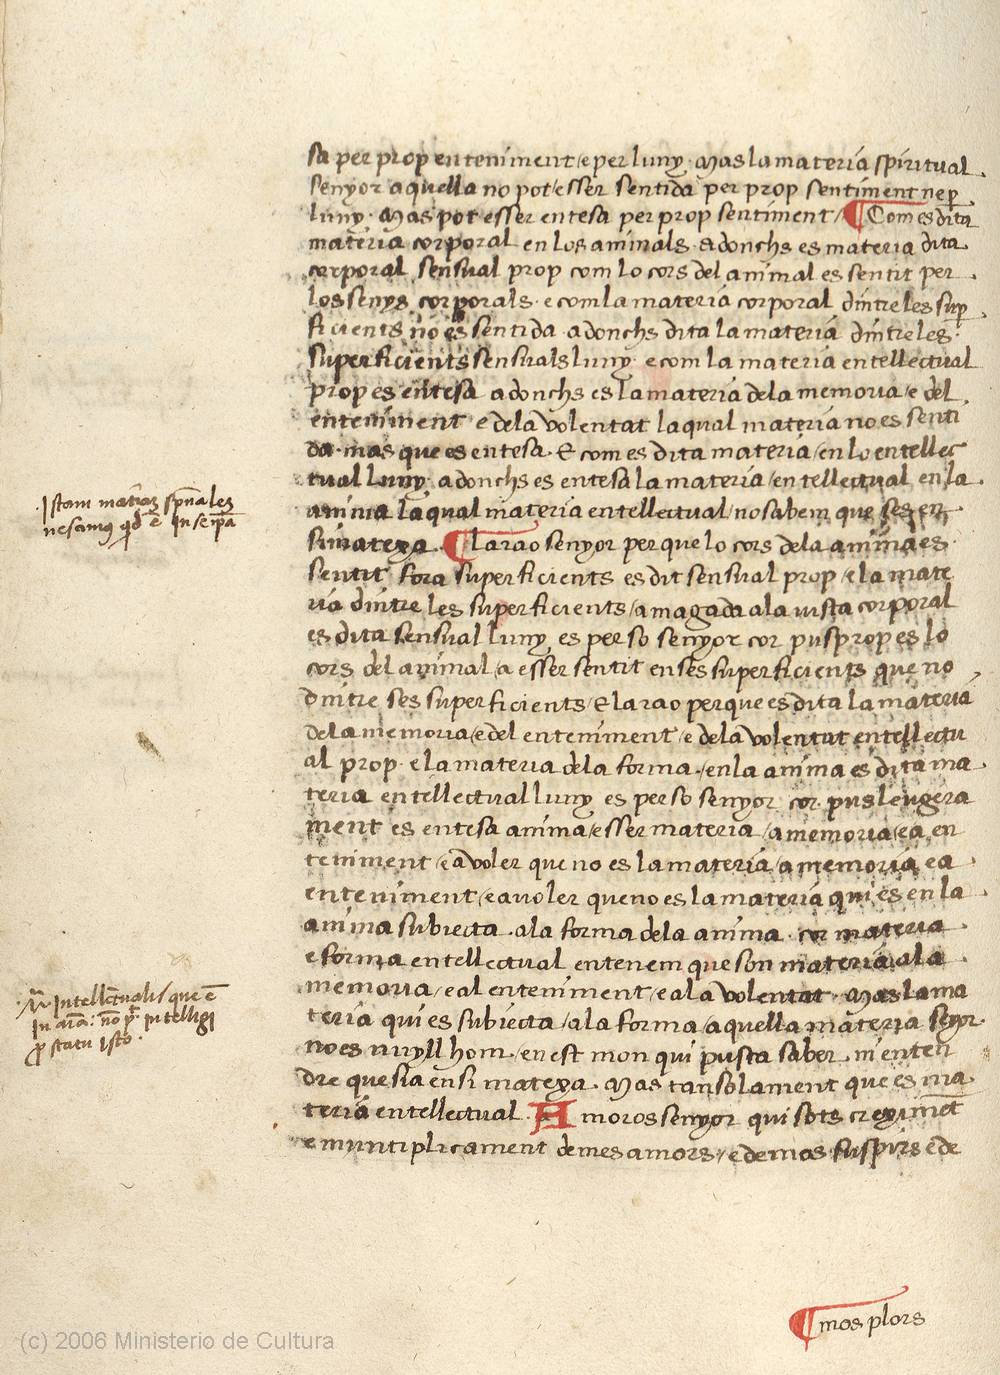 sa per prop enteniment/e per luny. Mas la materia spiritual
senyor aquella no pot/esser sentida per prop sentiment neꝑ
luny. Mas pot esser entesa per prop sentiment/ ¶ Com es dita
materia corporal en los animals. adonchs es materia dita
corporal sensual prop com lo cors del animal es sentit per
los senys corporals. e com la materia corporal dintre les suꝑ
ficients no es sentida. adonchs dita la materia dintre les
superficients sensuals luny. e com la materia entellectual
prop es entesa adonchs es la materia de la memoria/e del
enteniment e de la volentat la qual materia no es senti
da. mas que es entesa. E com es dita materia/en lo entellec
tual luny. adonchs es entesa la materia/entellectual en la
anima la qual materia entellectual/no sabem que ses en
simatexa. ¶ La rao senyor per que lo cors de la anima es
sentit fora superficients es dit sensual prop/e la mate
ria dintre les superficients/amagada a la vista corporal
es dita sensual luny es per so senyor cor pus prop es lo
cors del animal/a esser sentit en ses superficients que no
dintre ses superficients/E la rao per que es dita la materia
de la memoria/e del enteniment/e de la volentat entellectu
al prop. e la materia de la forma./en la anima es dita ma
teria entellectual luny es per so senyor cor. pus leugera
ment es entesa anima/esser materia/a memoria/e a en
teniment/e a voler que no es la materia/a memoria e a
enteniment/e a voler que no es la materia qui es en la
anima subiecta. a la forma de la anima. cor materia
e forma entellectual entenem que son materia a la
memoria/e al enteniment/e a la volentat. Mas la ma
teria qui es subiecta/a la forma/aquella materia seyor
no es nuyll hom/en est mon qui pusta saber. ni enten
dre que sia en si matexa. Mas tan solament que es ma
teria entellectual. Amoros senyor qui sots creximēt
e muntiplicament de mes amors/e de mos suspirs e de
¶ mos plors
.Istam materiaꝫ spūales
nescimus qd ē In se ipā
Intellectualis que ē
in aīa: nō pt intelligi
ꝓ statu isto.
(c) 2006 Ministerio de Cultura